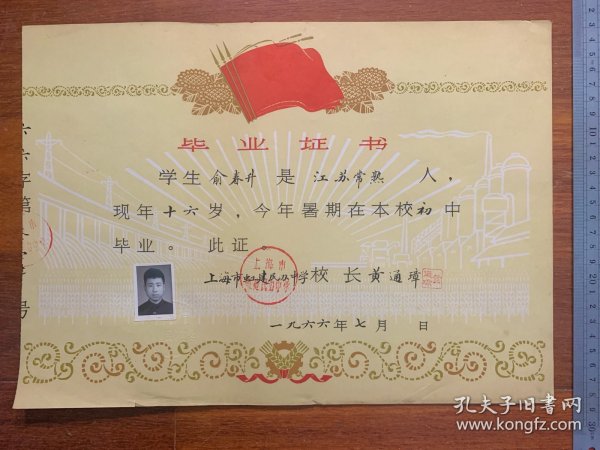 毕业证书
学生俞春升是江苏常熟人，
现年十六岁，今年暑期在本校初中
毕业。此证。
上海市虹建民办中学校长黄通璋
一九六六年七月 日
字第 号
上海市
孔夫子旧书网
www.kongfz.com